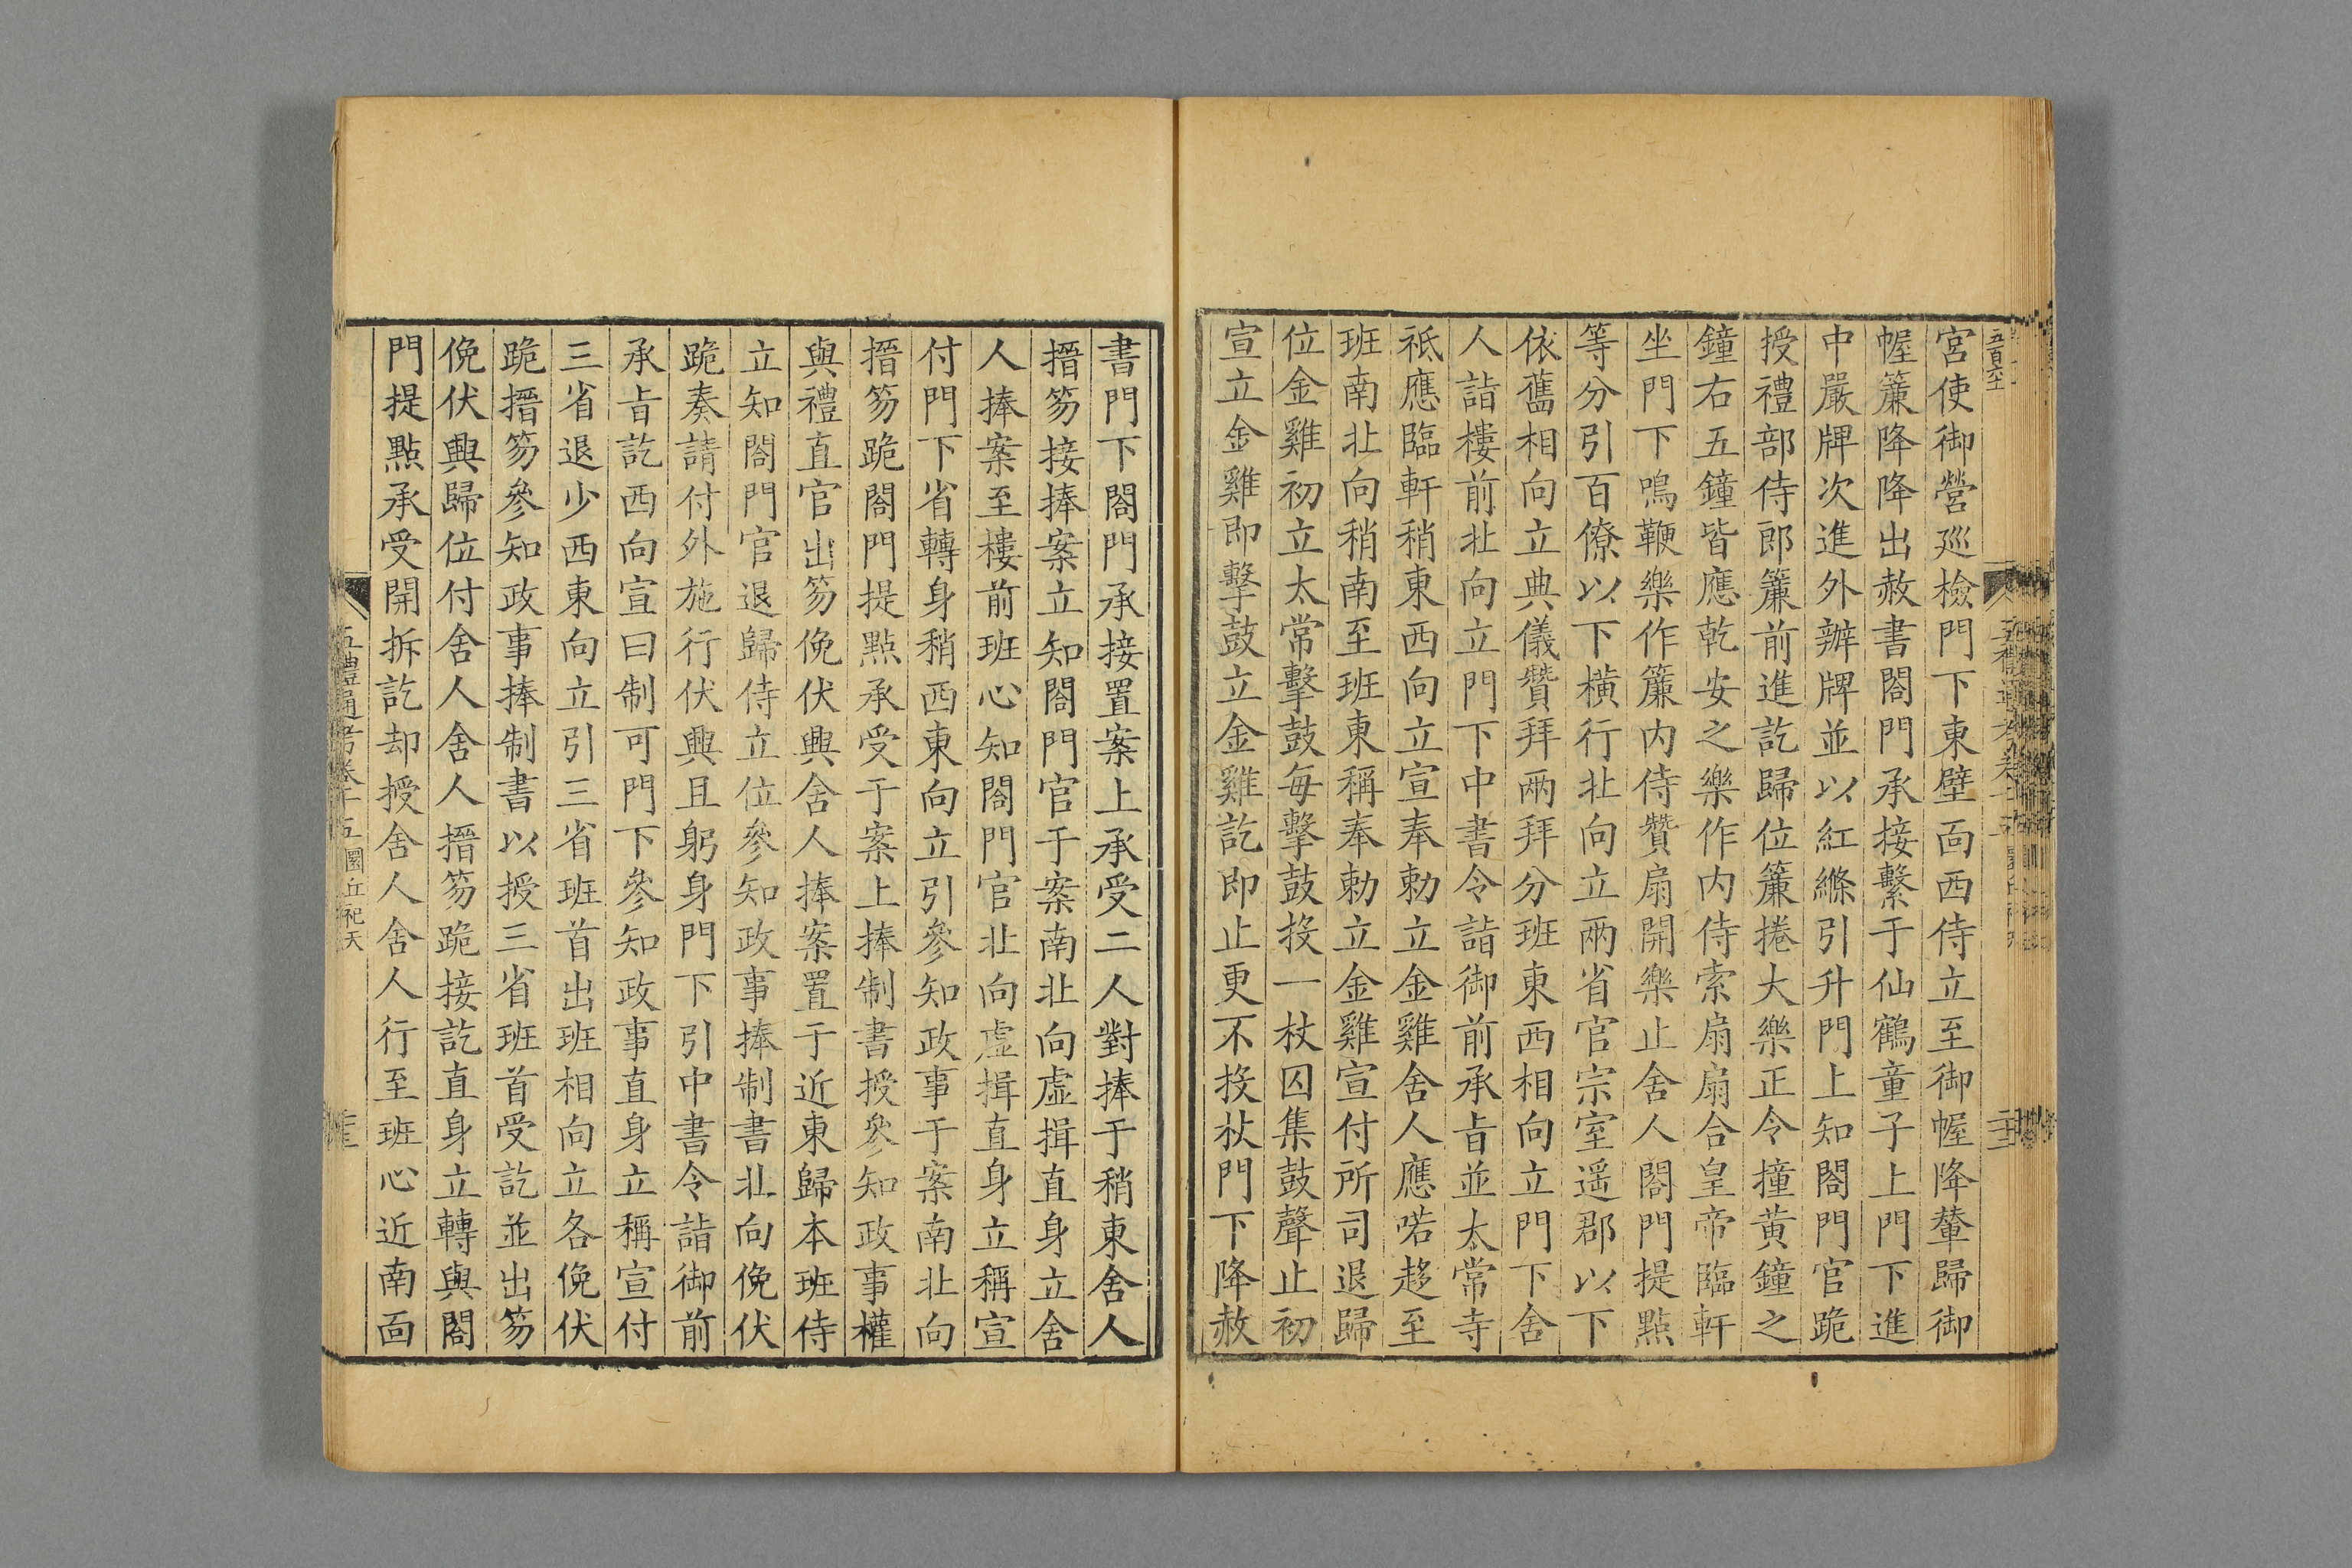 宮使御營廵檢門下東壁面西侍立至御幄降輦歸御
幄簾降降出赦書閤門承接繫于仙鶴童子上門下進
中嚴牌次進外辦牌並以紅縧引升門上知閤門官跪
授禮部侍郎簾前進訖歸位簾捲大樂正令撞黃鐘之
鐘右五鐘皆應乾安之樂作内侍索扇扇合皇帝臨軒
坐門下鳴鞭樂作簾内侍贊扇開樂止舍人閤門提點
等分引百僚以下橫行北向立兩省官宗室遥郡以下
依舊相向立典儀贊拜兩拜分班東西相向立門下舍
人詣樓前北向立門下中書令詣御前承旨並太常寺
祇應臨軒稍東西向立宣奉勅立金雞舍人應喏趍至
班南北向稍南至班東稱奉勅立金雞宣付所司退歸
位金雞初立太常擊鼓每擊鼓投一杖囚集鼓聲止初
宣立金雞即擊鼓立金雞訖即止更不投杖門下降赦
書門下閤門承接置案上承受二人對捧于稍東舍人
搢笏接捧案立知閤門官于案南北向虛揖直身立舍
人捧案至樓前班心知閤門官北向虛揖直身立稱宣
付門下省轉身稍西東向立引參知政事于案南北向
搢笏跪閤門提點承受于案上捧制書授參知政事權
與禮直官出笏俛伏興舍人捧案置于近東歸本班侍
立知閤門官退歸侍立位參知政事捧制書北向俛伏
跪奏請付外施行伏興且躬身門下引中書令詣御前
承旨訖西向宣曰制可門下參知政事直身立稱宣付
三省退少西東向立引三省班首出班相向立各俛伏
跪搢笏參知政事捧制書以授三省班首受訖並出笏
俛伏興歸位付舍人舍人搢笏跪接訖直身立轉與閤
門提點承受開拆訖却授舍人舍人行至班心近南面
五禮通考卷十五圜丘祀天